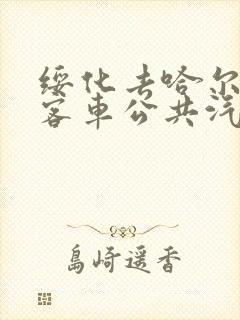 绥化去哈尔
客车公共汽
島崎遥香